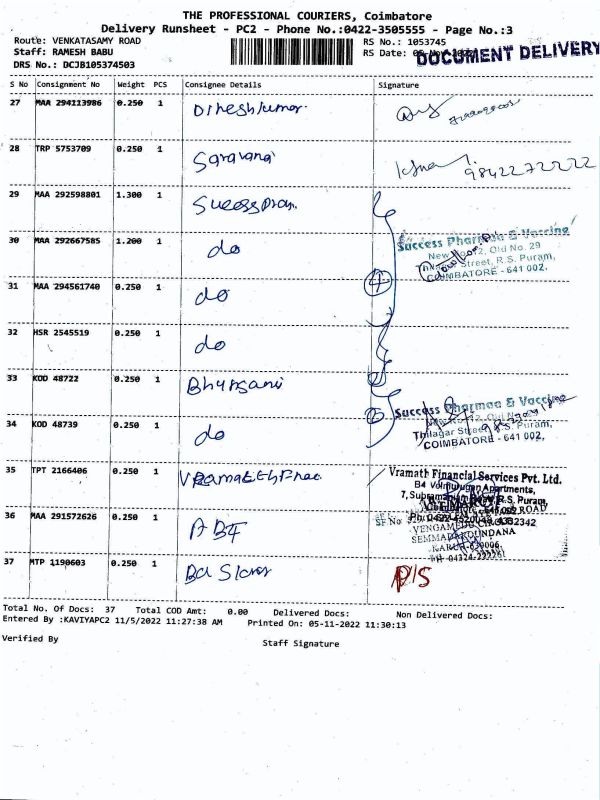 THE PROFESSIONAL COURIERS, Coimbatore
Delivery Runsheet - PC2 - Phone No.:0422-3505555 - Page No.:3
Route: VENKATASAMY ROAD
RS No.: 1053745
Staff: RAMESH BABU
RS Date:
DOCUMENT DELIVERY
DRS No.: DCJB105374503
S No Consignment No Weight PCS Consignee Details Signature
27 MAA 294113986 0.250 1 Dineshkumar
28 TRP 5753709 0.250 1 Saravana
9842272222
29 MAA 292598801 1.300 1
30 MAA 292667585 1.200 1 do
Success Pharmaa & Vaccine
New No. 2, Old No. 29
Thilagar Street, R.S. Puram,
COIMBATORE - 641 002.
31 MAA 294561740 0.250 1 do
4
32 HSR 2545519 0.250 1 do
33 KOD 48722 0.250 1
34 KOD 48739 0.250 1 do
Success Pharmaa & Vaccine
Thilagar Street, R.S. Puram,
COIMBATORE - 641 002.
35 TPT 2166406 0.250 1
Vramath Financial Services Pvt. Ltd.
B4 Volmurugan Apartments,
36 MAA 291572626 0.250 1
SF No
VENGAMEDU
37 MTP 1190603 0.250 1
D/S
Total No. Of Docs: 37 Total COD Amt: 0.00 Delivered Docs: Non Delivered Docs:
Entered By :KAVIYAPC2 11/5/2022 11:27:38 AM Printed On: 05-11-2022 11:30:13
Verified By
Staff Signature